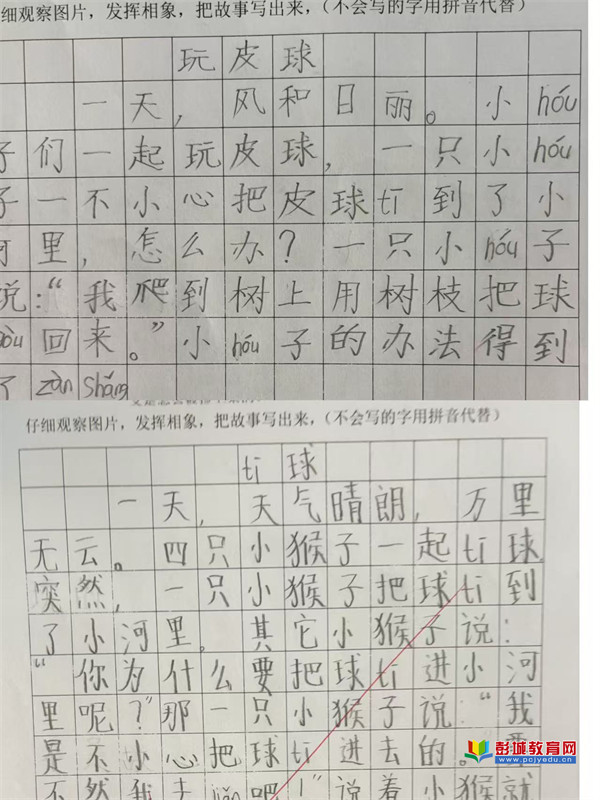 细观察图片，发挥相象，把故事写出来，（不会写的字用拼音代替）
玩皮球
一天，风和日丽。小hóu
子们一起玩皮球，一只小hóu
子一不小心把皮球tī到了小
河里，怎么办？一只小hóu子
说：“我爬到树上用树枝把球
回来。”小hóu子的办法得到
了zàn shǎng
仔细观察图片，发挥相象，把故事写出来，（不会写的字用拼音代替）
tī球
一天，天气晴朗，万里
无云。四只小猴子一起tī球
突然，一只小猴子把球tī到
了小河里。其它小猴子说：
“你为什么要把球tī进小河
里呢？”那一只小猴子说：“我
是不小心把球tī进去的。要
不然我去jiǎn吧！”说着小猴就
彭城教育网
www.pcjyedu.cn